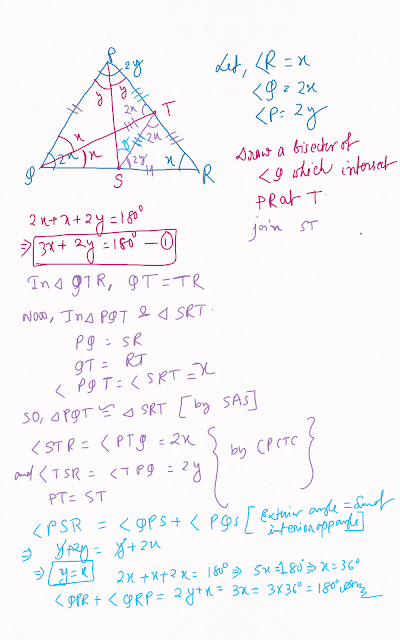 P
2y
y y
2x
T
x
x
2x
2x
y
2y
x
Q
S
R
Let, <R = x
<Q = 2x
<P = 2y
Draw a bisector of
<Q which intersect
PR at T.
join ST
2x+x+2y=180°
⇒ 3x+2y=180° — ①
In △ QTR, QT = TR
Now, In △ PQT & △ SRT.
PQ = SR
QT = RT
< PQT = < SRT = x
SO, △PQT ≅ △ SRT [by SAS]
<STR = <PTQ = 2x
and <TSR = <TPQ = 2y
PT = ST
} by CPCTC }
<PSR = <QPS + <PQS [Exterior angle = Sum of
interior opp angle]
⇒ y+2y = y+2x
⇒ y=x 2x+x+2x = 180° ⇒ 5x=180° ⇒ x=36°
<QPR + <QRP = 2y+x = 3x = 3x36° = 180°